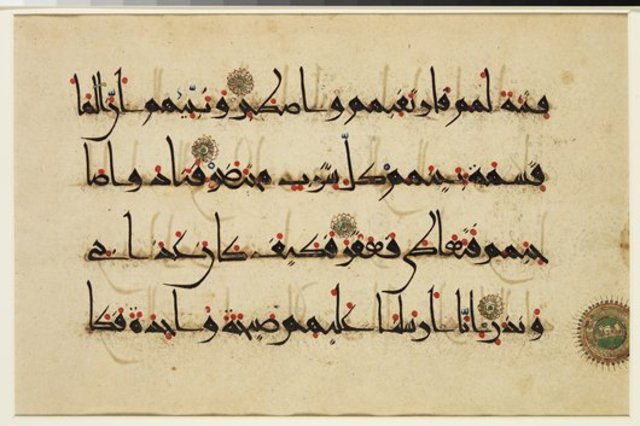 فتنة لهم فارتقبهم واصطبر ونبئهم ان الما
قسمة بينهم كل شرب محتضر فنادوا صا
حبهم فتعاطى فعقر فكيف كان عذابي
ونذر انا ارسلنا عليهم صيحة واحدة فكا